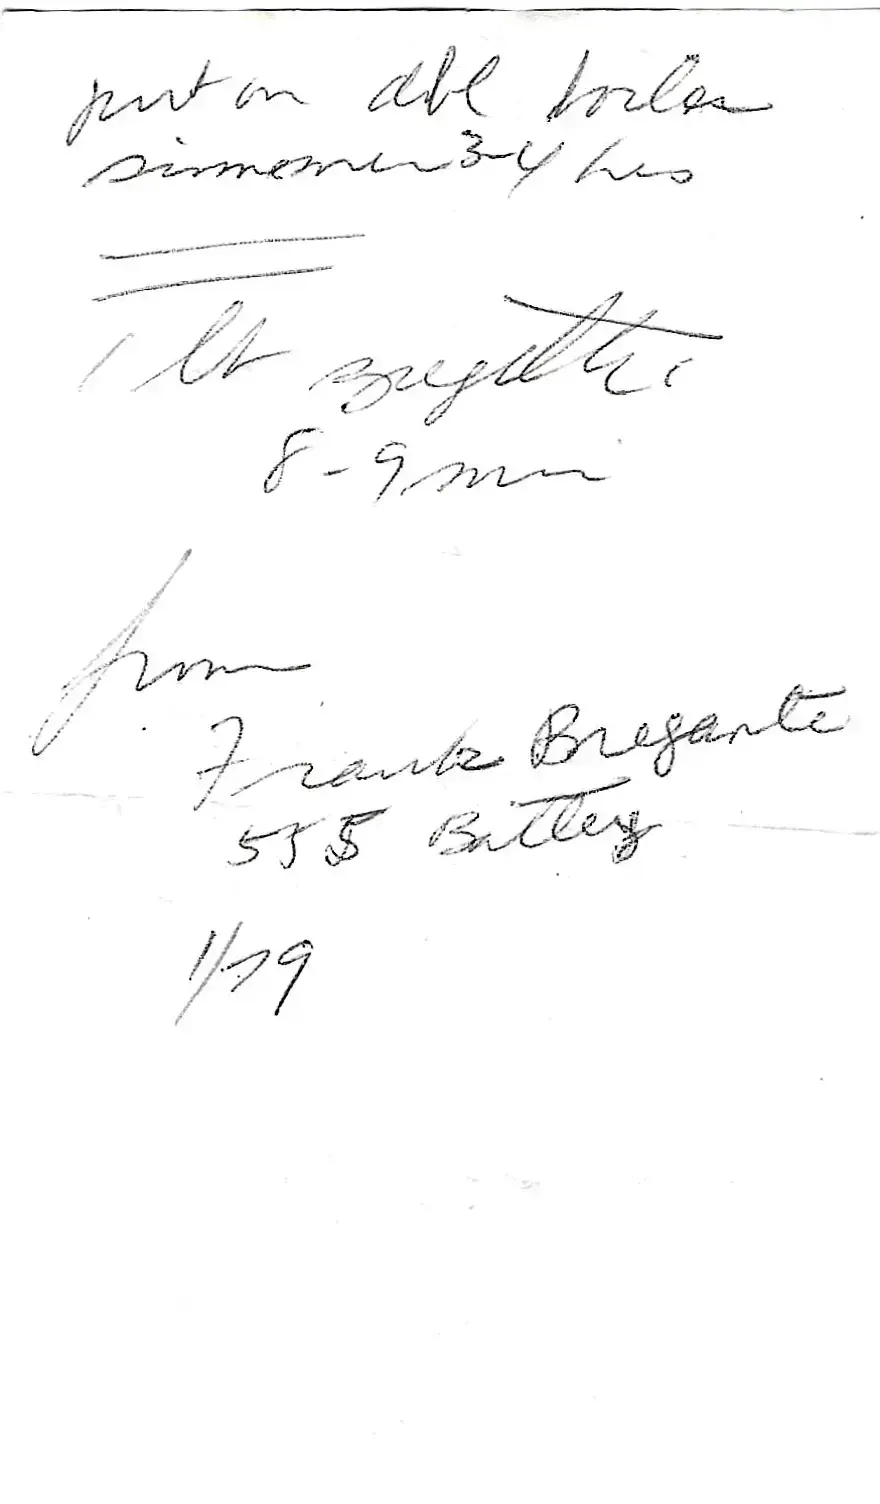 put on dbl boiler
simmemer 3-4 hrs
1 lb
8-9 min
from
Frank Bregante
555 Battery
1/79